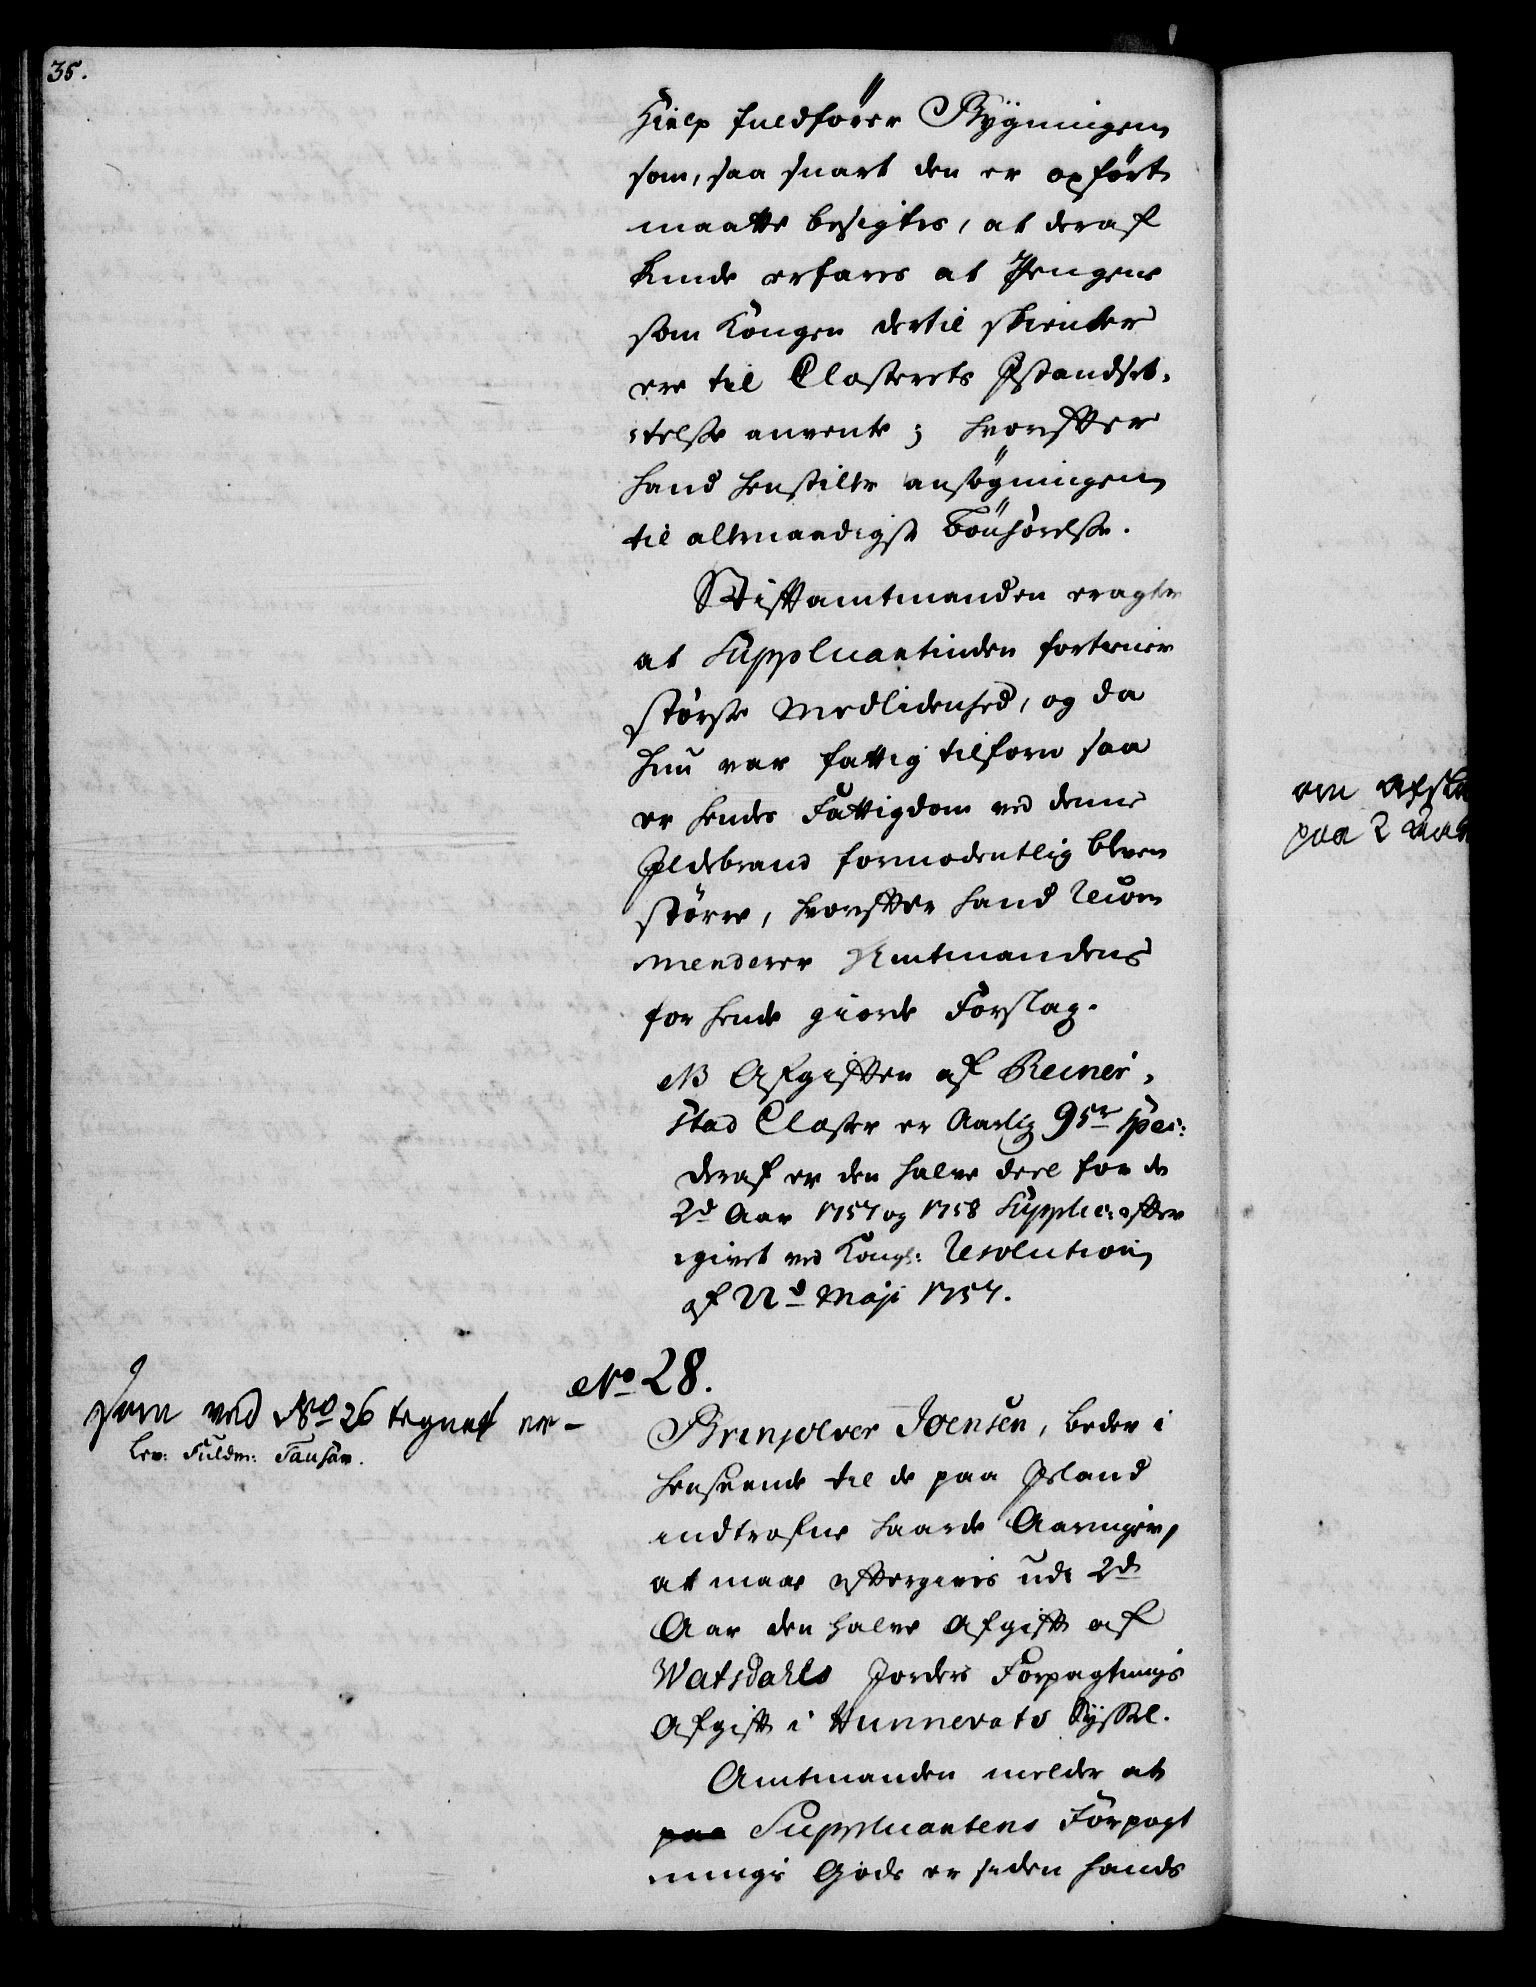 35.
Hielp fuldfører Bygningen
som, saa snart den er opført
maatte besigtes, at deraf
kunde erfares at Pengene
som Kongen dertil skienker
ere til Closterets Istandset-
telse anvente; hvorefter
hand henstiller ansøgningen
til allernaadigst bønhørelse.
Stiftamtmanden eragter
at Supplicantinden fortiener
største Medlidenhed, og da
hun var fattig tilforn saa
er hendes Fattigdom ved denne
Ildebrand formodentlig bleven
større, hvorefter hand Recom
menderer Amtmandens
for hende giorde Forslag.
NB Afgiften af Reiner-
stad Closter er Aarlig 95 r spec:
deraf er den halve deel for de
2de Aar 1757 og 1758 Supplic: efter
givet ved Kongl: Resolution
af 22d Maji 1757.
No 28.
som ved No 26 tegnet er-
lev: Fuldm:
Brinjolver Joensen, beder i
henseende til de paa Island
indtrofne haarde Aaringer,
at maae eftergives udi 2de
Aar den halve Afgift af
Watsdahls Jorders Forpagtnings
Afgift i Hunnevats Syssel.
Amtmanden melder at
paa Supplicantens Forpagt
nings Gods er siden hands
om
paa 2